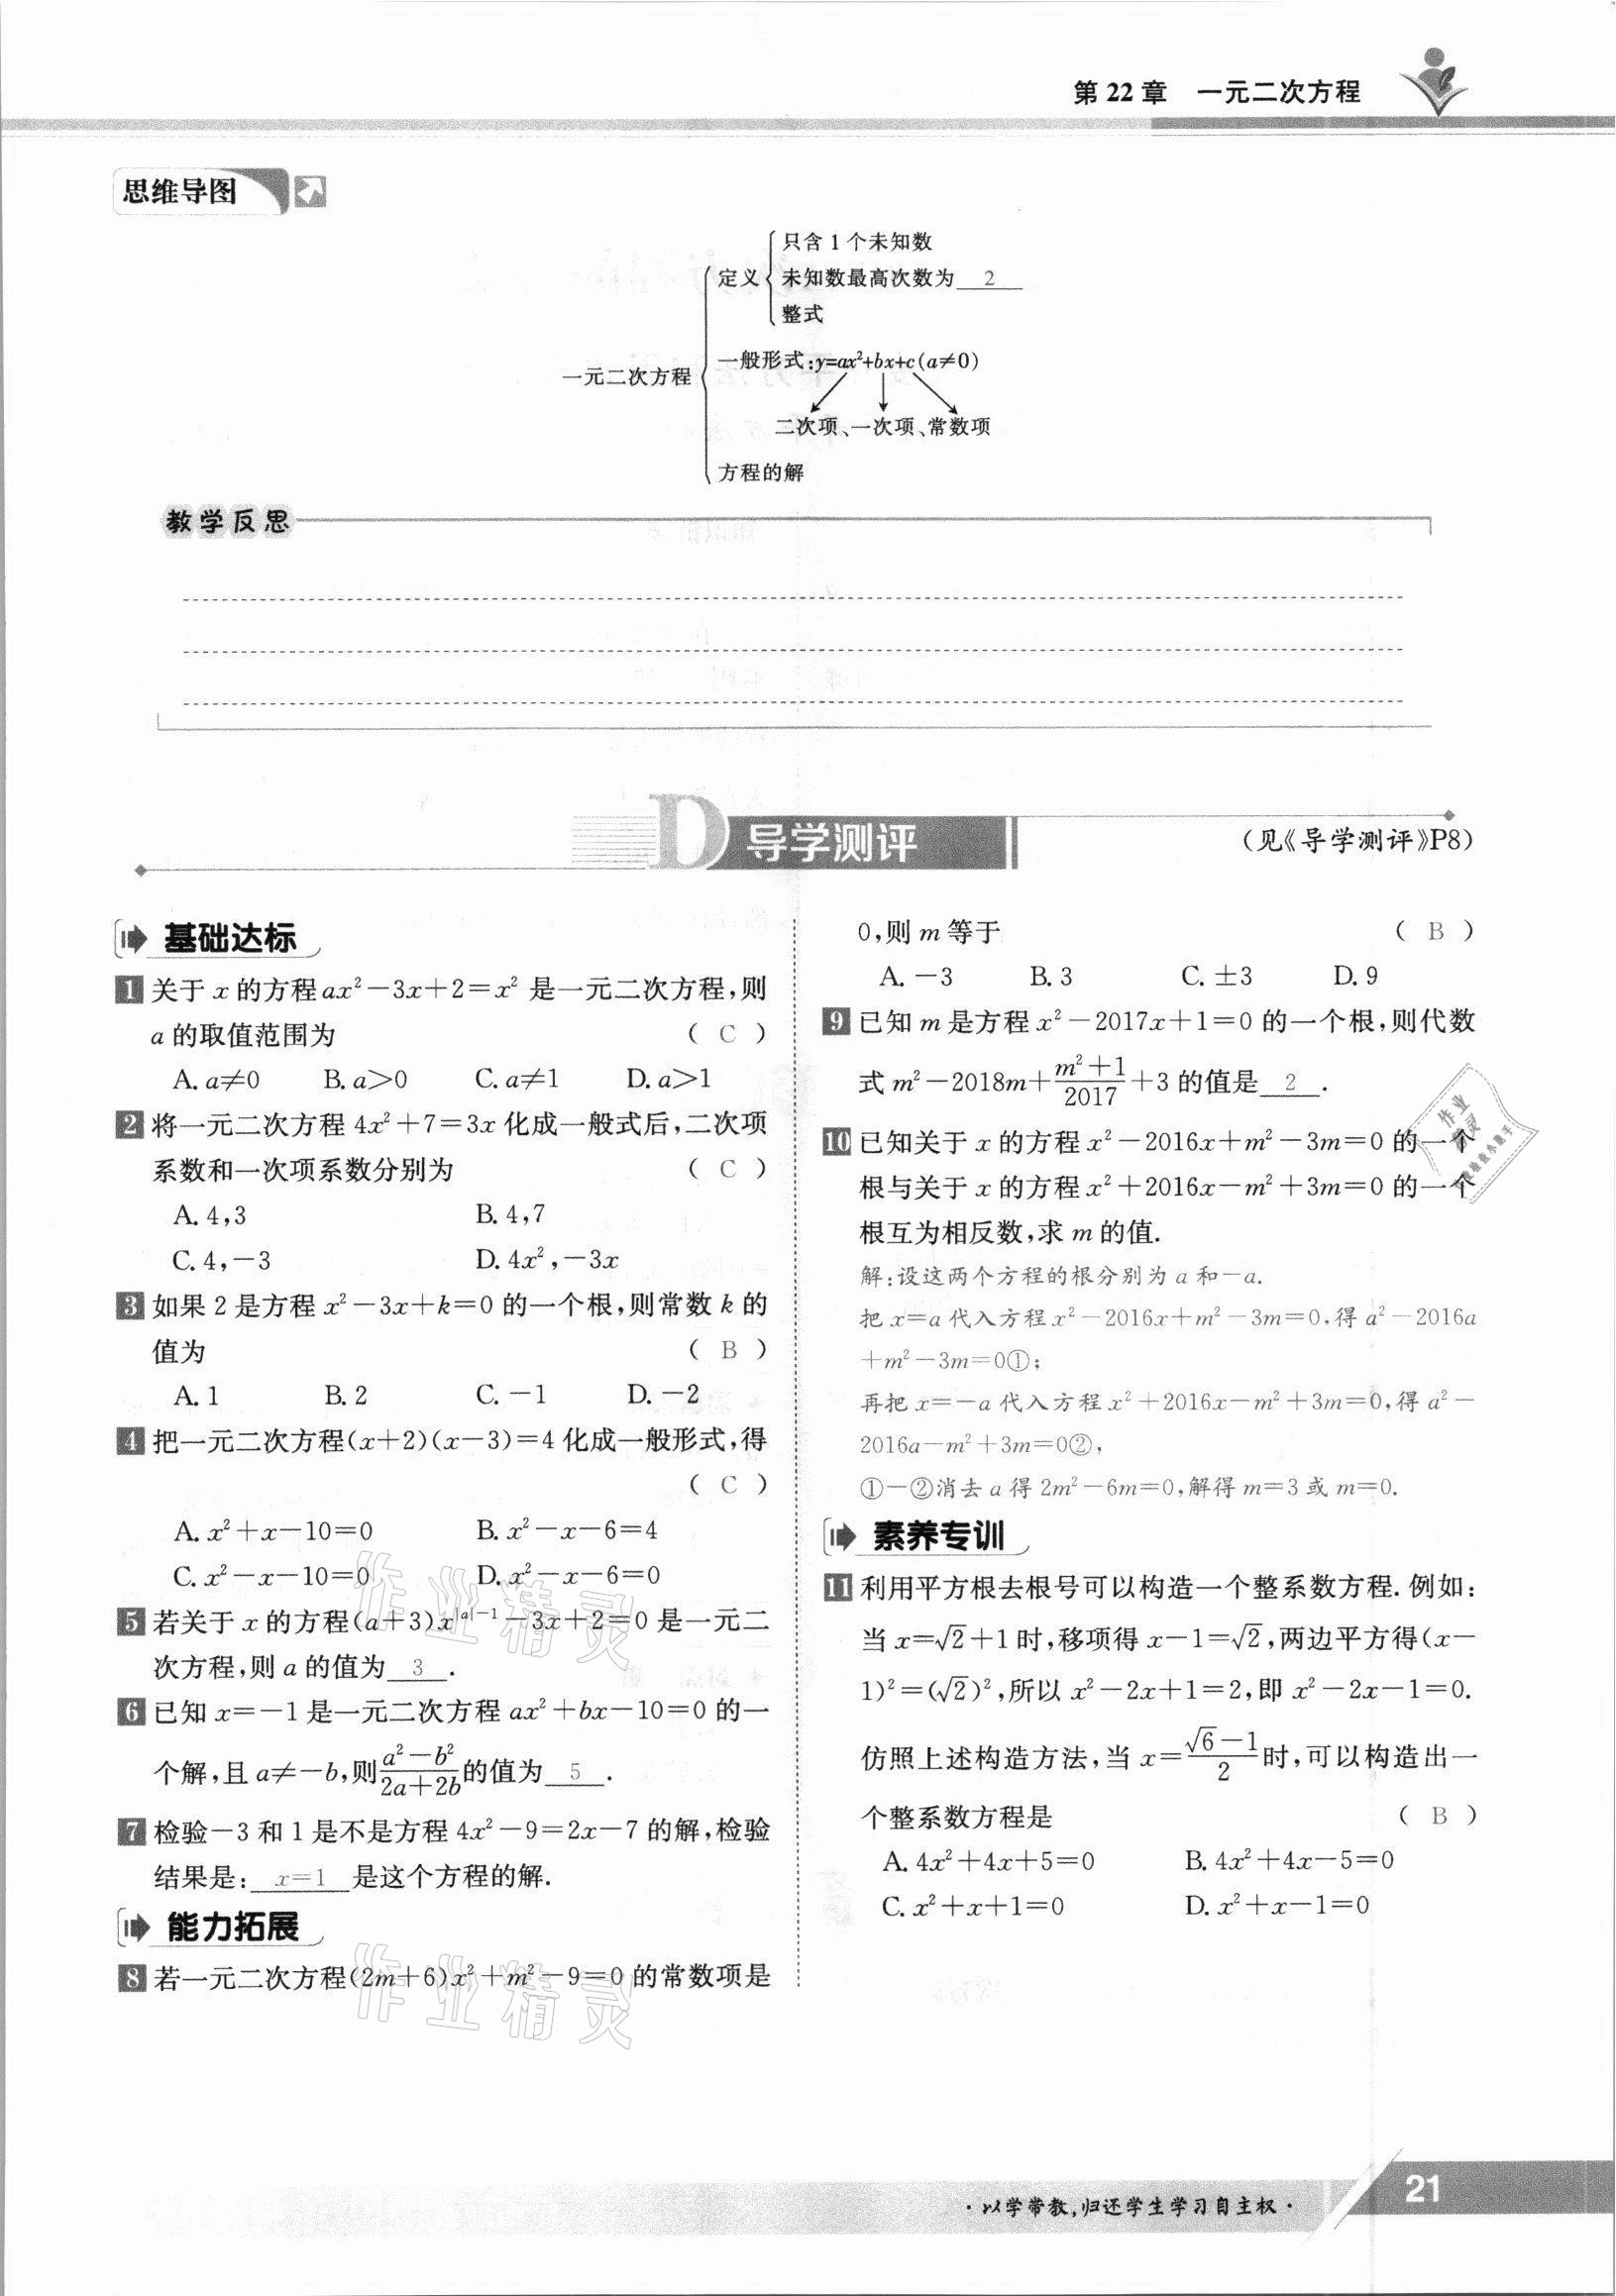 第 22 章　一元二次方程
思维导图
一元二次方程
定义
只含 1 个未知数
未知数最高次数为 2
整式
一般形式:y=ax²+bx+c(a≠0)
二次项、一次项、常数项
方程的解
教学反思
D 导学测评
(见《导学测评》P8)
基础达标
1 关于 x 的方程 ax²－3x＋2＝x² 是一元二次方程,则
a 的取值范围为 ( C )
A. a≠0　B. a＞0　C. a≠1　D. a＞1
2 将一元二次方程 4x²＋7＝3x 化成一般式后,二次项
系数和一次项系数分别为 ( C )
A. 4,3　B. 4,7
C. 4,－3　D. 4x²,－3x
3 如果 2 是方程 x²－3x＋k＝0 的一个根,则常数 k 的
值为 ( B )
A. 1　B. 2　C. －1　D. －2
4 把一元二次方程(x＋2)(x－3)＝4 化成一般形式,得
( C )
A. x²＋x－10＝0　B. x²－x－6＝4
C. x²－x－10＝0　D. x²－x－6＝0
5 若关于 x 的方程(a＋3)x^{|a|－1}－3x＋2＝0 是一元二
次方程,则 a 的值为 3 .
6 已知 x＝－1 是一元二次方程 ax²＋bx－10＝0 的一
个解,且 a≠－b,则(a²－b²)/(2a＋2b)的值为 5 .
7 检验－3 和 1 是不是方程 4x²－9＝2x－7 的解,检验
结果是: x＝1 是这个方程的解.
能力拓展
8 若一元二次方程(2m＋6)x²＋m²－9＝0 的常数项是
0,则 m 等于 ( B )
A. －3　B. 3　C. ±3　D. 9
9 已知 m 是方程 x²－2017x＋1＝0 的一个根,则代数
式 m²－2018m＋(m²＋1)/2017＋3 的值是 2 .
10 已知关于 x 的方程 x²－2016x＋m²－3m＝0 的一个
根与关于 x 的方程 x²＋2016x－m²＋3m＝0 的一个
根互为相反数,求 m 的值.
解:设这两个方程的根分别为 a 和－a.
把 x＝a 代入方程 x²－2016x＋m²－3m＝0,得 a²－2016a
＋m²－3m＝0①;
再把 x＝－a 代入方程 x²＋2016x－m²＋3m＝0,得 a²－
2016a－m²＋3m＝0②,
①－②消去 a 得 2m²－6m＝0,解得 m＝3 或 m＝0.
素养专训
11 利用平方根去根号可以构造一个整系数方程. 例如:
当 x＝√2＋1 时,移项得 x－1＝√2,两边平方得(x－
1)²＝(√2)²,所以 x²－2x＋1＝2,即 x²－2x－1＝0.
仿照上述构造方法,当 x＝(√6－1)/2 时,可以构造出一
个整系数方程是 ( B )
A. 4x²＋4x＋5＝0　B. 4x²＋4x－5＝0
C. x²＋x＋1＝0　D. x²＋x－1＝0
作业精灵
作业精灵
作业
·以学带教,归还学生学习自主权·
21